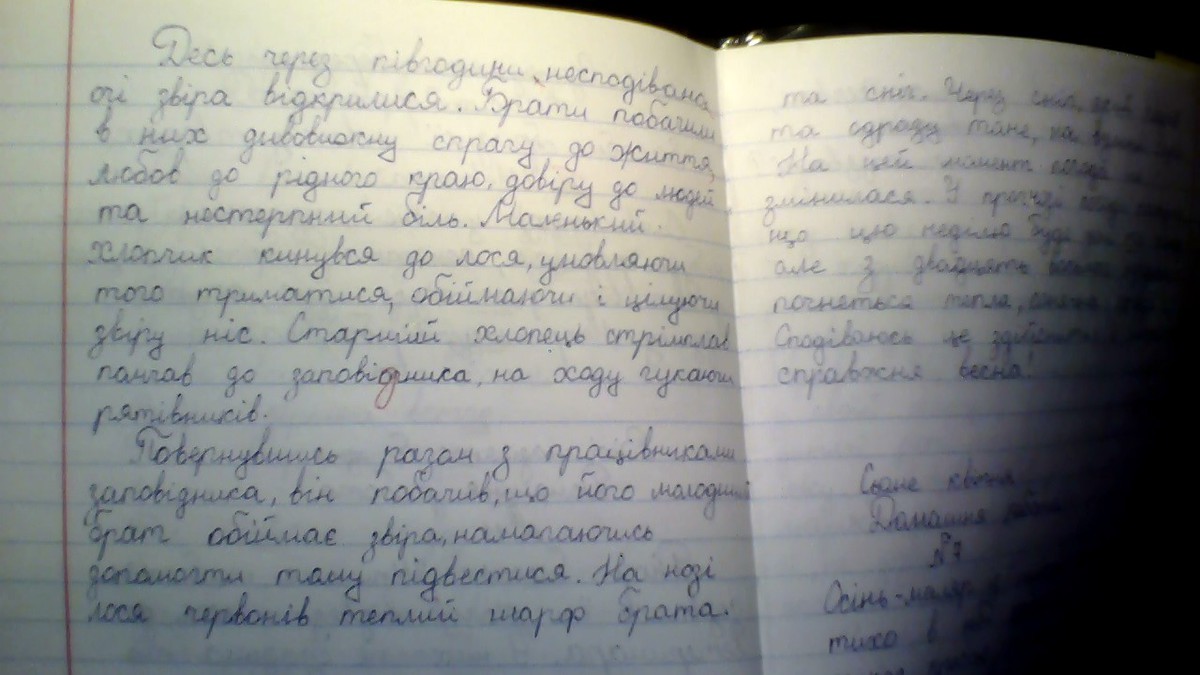 Десь через півгодини, несподівано
очі звіра відкрилися. Брати побачили
в них дивовижну спрагу до життя,
любов до рідного краю, довіру до людей
та нестерпний біль. Маленький
хлопчик кинувся до лося, умовляючи
того триматися, обіймаючи і цілуючи
звіру ніс. Старший хлопець стрімголов
помчав до заповідника, на ходу гукаючи
рятівників.
Повернувшись разом з працівниками
заповідника, він побачив, що його молодший
брат обіймає звіра, намагаючись
допомогти тому підвестися. На нозі
лося червонів теплий шарф брата.
та сніг. Через сніг,
та одразу тане, на
На цей момент погода
змінилася. У прогнозі
що цю неділю буде
але з двадцять
почнеться тепла, сонячна
Сподіваюсь це
справжня весна!
Сьоме квітня
Домашня робота
№7
Осінь-маляр
тихо в